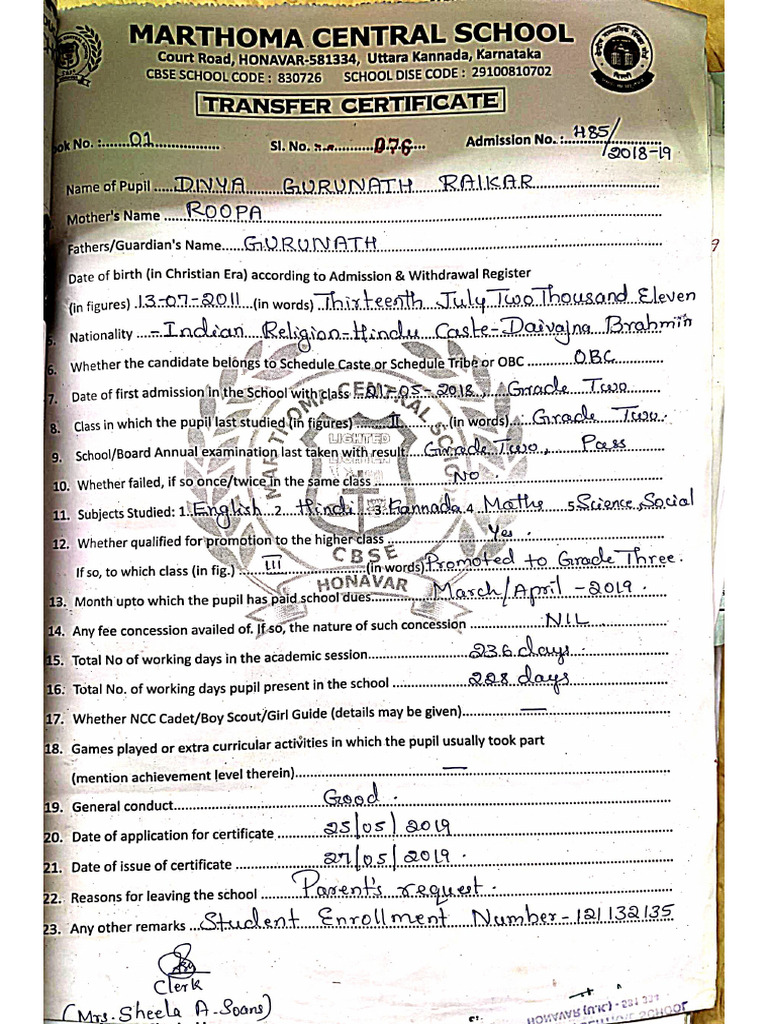 MARTHOMA CENTRAL SCHOOL
Court Road, HONAVAR-581334, Uttara Kannada, Karnataka
CBSE SCHOOL CODE : 830726 SCHOOL DISE CODE : 29100810702
TRANSFER CERTIFICATE
ok No. :......01.................. Sl. No. ..............076....... Admission No. :..485/
/2018-19
Name of Pupil ..... DIVYA GURUNATH RAIKAR
Mother's Name ... ROOPA
Fathers/Guardian's Name.... GURUNATH
Date of birth (in Christian Era) according to Admission & Withdrawal Register
(in figures) 13-07-2011 (in words) Thirteenth July Two Thousand Eleven
5. Nationality - Indian Religion-Hindu Caste-Daivajna Brahmin
6. Whether the candidate belongs to Schedule Caste or Schedule Tribe or OBC ........ OBC
7. Date of first admission in the School with class 01-05-2018, Grade Two
8. Class in which the pupil last studied (in figures) ...... II ...... (in words) .. Grade Two.
9. School/Board Annual examination last taken with result Grade Two, Pass
10. Whether failed, if so once/twice in the same class ........ NO .
11. Subjects Studied: 1. English 2. Hindi 3. Kannada 4. Maths 5. Science, Social
12. Whether qualified for promotion to the higher class ........ Yes .
If so, to which class (in fig.) .... III ........ (in words) Promoted to Grade Three.
13. Month upto which the pupil has paid school dues........ March/April - 2019 .
14. Any fee concession availed of. If so, the nature of such concession ........ NIL
15. Total No of working days in the academic session........ 236 days .
16. Total No. of working days pupil present in the school ........ 228 days
17. Whether NCC Cadet/Boy Scout/Girl Guide (details may be given)........ —
18. Games played or extra curricular activities in which the pupil usually took part
(mention achievement level therein)........ —
19. General conduct........ Good .
20. Date of application for certificate ........ 25/05/2019
21. Date of issue of certificate ........ 27/05/2019 .
22. Reasons for leaving the school ........ Parent's request .
23. Any other remarks ... Student Enrollment Number - 121132135
Clerk
(Mrs. Sheela A. Soans)
MARTHOMA CENTRAL SCHOOL
LIGHTED
CBSE
HONAVAR